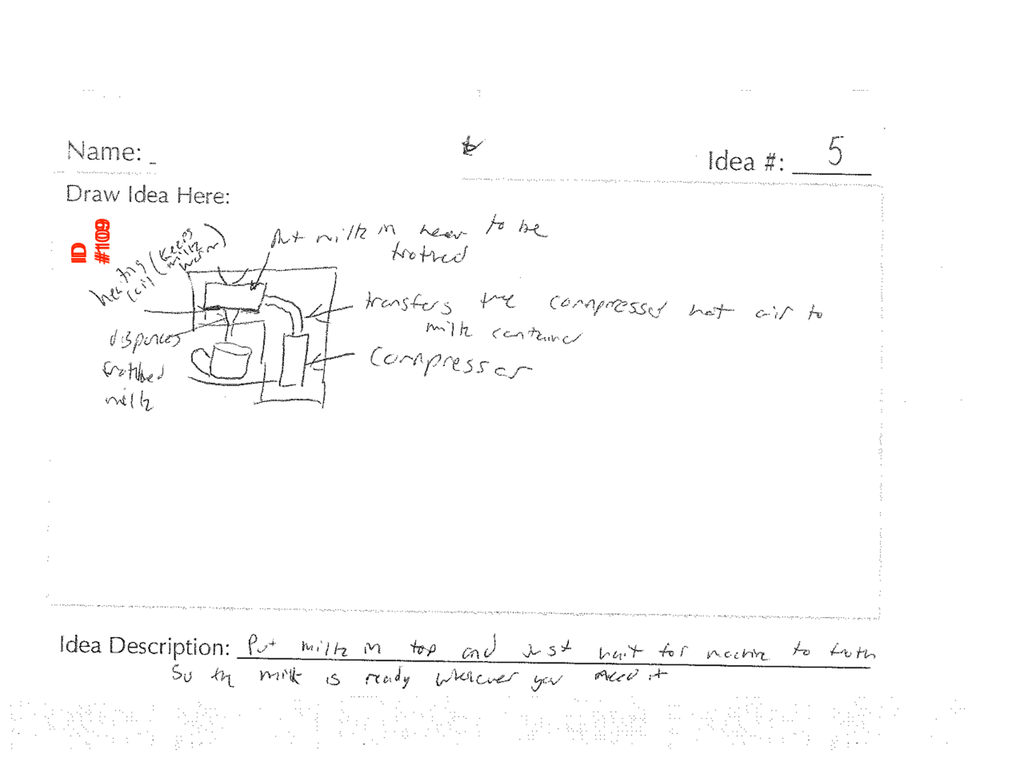 Name:
Idea #: 5
Draw Idea Here:
ID
#1109
Put milk in here to be
frothed
heating
coil (keeps
milk
warm)
transfers the compressed hot air to
milk container
dispences
frothed
milk
Compressor
Idea Description: Put milk in top and just wait for machine to froth
So the milk is ready whenever you need it